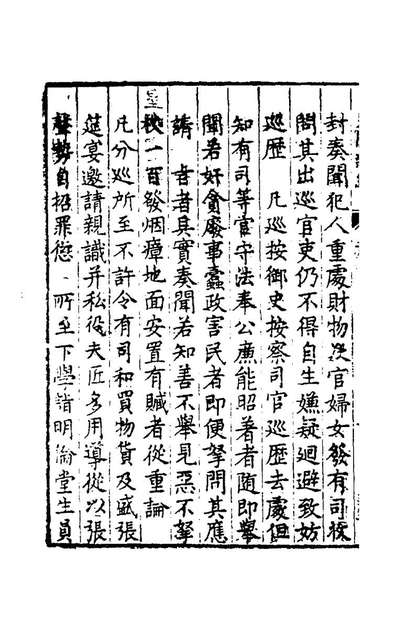 封奏聞犯人重處財物沒官婦女發有司校
問其出巡官吏仍不得自生嫌疑廻避致妨
巡歷 凡巡按御史按察司官巡歷去處但
知有司等官守法奉公廉能昭著者隨即舉
聞若奸貪廢事蠹政害民者即便拏問其應
請 旨者具實奏聞若知善不舉見惡不拏
杖一百發烟瘴地面安置有贓者從重論
凡分巡所至不許令有司和買物貨及盛張
筵宴邀請親識并私役夫匠多用導從以張
聲勢自招罪愆 所至下學詣明倫堂生員